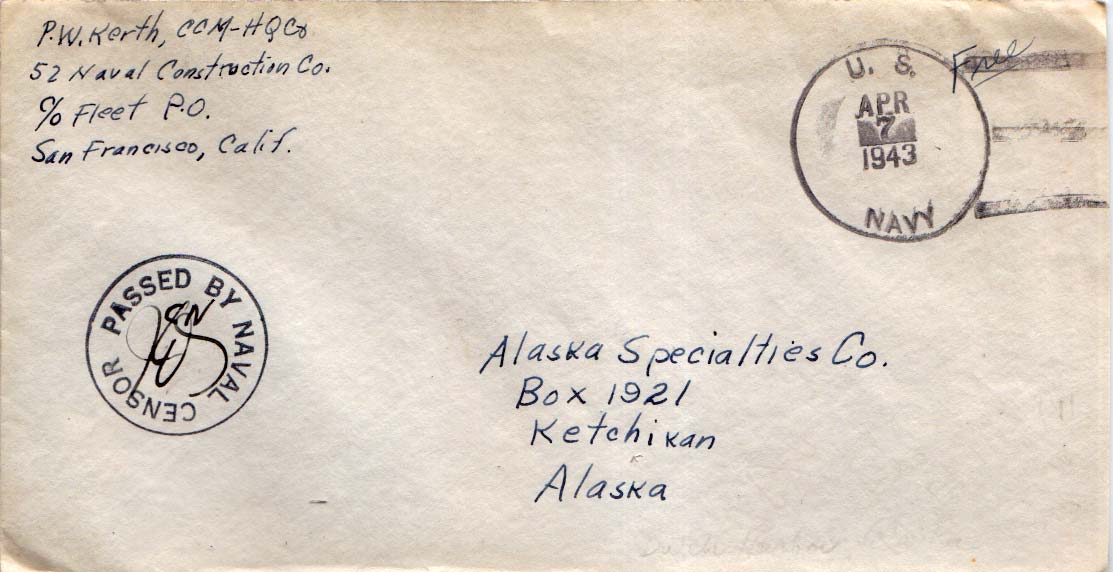 P.W. Kerth, CCM-HQCo
52 Naval Construction Co.
c/o Fleet P.O.
San Francisco, Calif.
Free
U. S.
APR
7
1943
NAVY
PASSED BY NAVAL CENSOR
Alaska Specialties Co.
Box 1921
Ketchikan
Alaska
Dutch Harbor